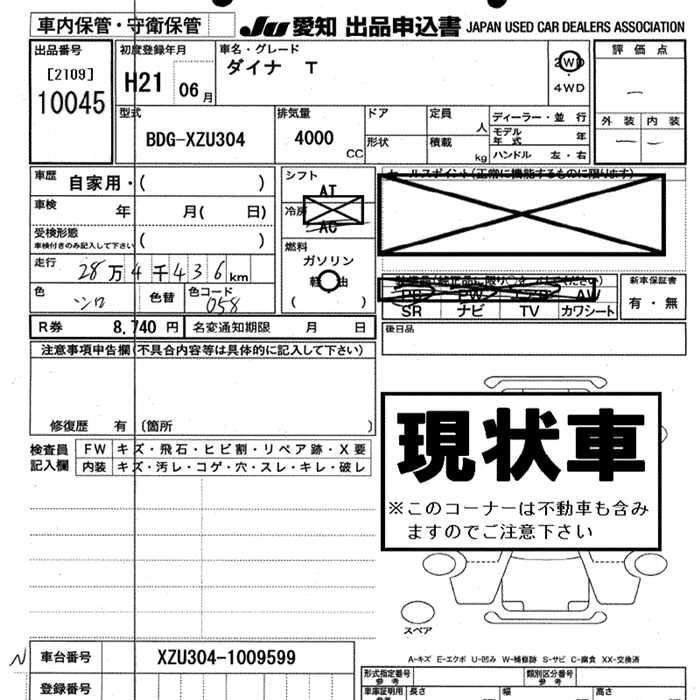 車内保管・守衛保管
JU 愛知 出品申込書 JAPAN USED CAR DEALERS ASSOCIATION
出品番号
[2109]
10045
初度登録年月
H21 06 月
車名・グレード
ダイナ T
2WD
・
4WD
評価点
—
外装 内装
— —
型式
BDG-XZU304
排気量
4000 CC
ドア
形状
定員 人
積載 kg
ディーラー・並 行
モデル年式 年
ハンドル 左・右
車歴 自家用・( )
車検 年 月( 日)
受検形態
車検付きのみ記入して下さい ( )
走行 28万4千436km
色 シロ 色替 色コード 058
シフト
AT
冷房
AC
燃料
ガソリン
軽油
( )
セールスポイント(正常に機能するものに限ります)
装備品(純正品に限り○をつけてください)
PS PW エアB AW
SR ナビ TV カワシート
新車保証書
有・無
後日品
R券 8,740 円 名変通知期限 月 日
注意事項申告欄(不具合内容等は具体的に記入して下さい)
修復歴 有〔箇所 〕
検査員
記入欄
FW キズ・飛石・ヒビ割・リペア跡・X要
内装 キズ・汚レ・コゲ・穴・スレ・キレ・破レ
現状車
※このコーナーは不動車も含み
ますのでご注意下さい
スペア
A-キズ E-エクボ U-凹み W-補修跡 S-サビ C-腐食 XX-交換済
N 車台番号 XZU304-1009599
登録番号
型式指定番号
参考
類別区分番号
参考
車庫証明用
参考
長さ 幅 高さ